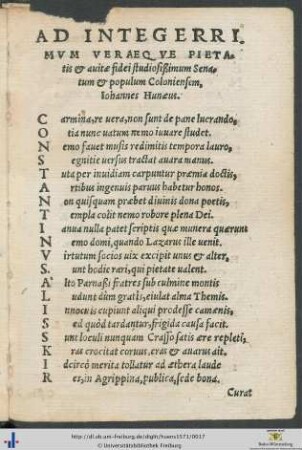 AD INTEGERRI
MVM VERAEQVE PIETA-
tis & auitæ fidei studiosißimum Sena-
tum & populum Coloniensem,
Iohannes Hunæus.
Carmina, re uera, non sunt de pane lucrando,
Otia nunc uatum nemo iuuare studet.
Nemo fauet musis redimitis tempora lauro,
Segnitie uersus tractat auara manus.
Tuta per inuidiam carpuntur præmia doctis,
Artibus ingenuis paruus habetur honos.
Non quisquam præbet diuinis dona poetis,
Templa colit nemo robore plena Dei.
Ianua nulla patet scriptis quæ munera quærunt
Nemo domi, quando Lazarus ille uenit.
Virtutum socios uix excipit unus & alter,
Sunt hodie rari, qui pietate ualent.
Alto Parnaßi fratres sub culmine montis
Ludunt dum gratis, eiulat alma Themis.
Innocuis cupiunt aliqui prodesse camœnis,
Sed quòd tardantur, frigida causa facit.
Sunt loculi nunquam Crasso satis ære repleti,
Kras crocitat coruus, cras & auarus ait.
Idcircò merito tollatur ad æthera laude
Res, in Agrippina, publica, sede bona.
Curat
http://dl.ub.uni-freiburg.de/diglit/hvans1571/0017
© Universitätsbibliothek Freiburg
Baden-Württemberg